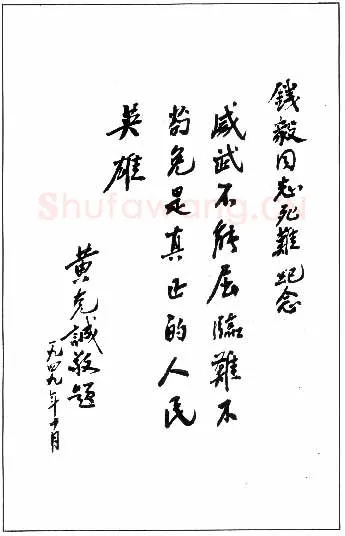 錢毅同志死難紀念
威武不能屈臨難不
苟免是真正的人民
英雄
黄克誠敬題
一九四九年十月
Shufawang.CN